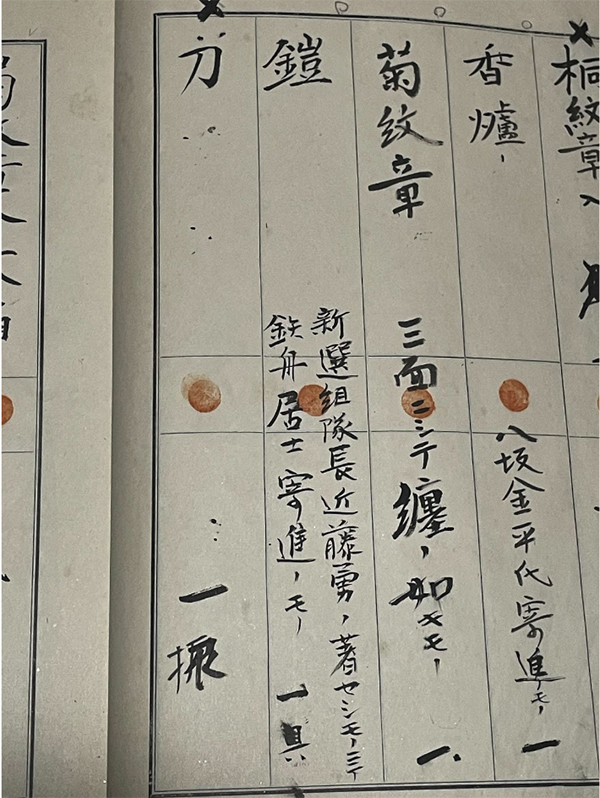 桐紋章入
香爐、
八坂金平氏寄進モノ 一
菊紋章
三面ニシテ纏ノ如キモノ 一、
鎧
新選組隊長近藤勇ノ著セシモノニテ
鉄舟居士寄進ノモノ 一具
刀
一振